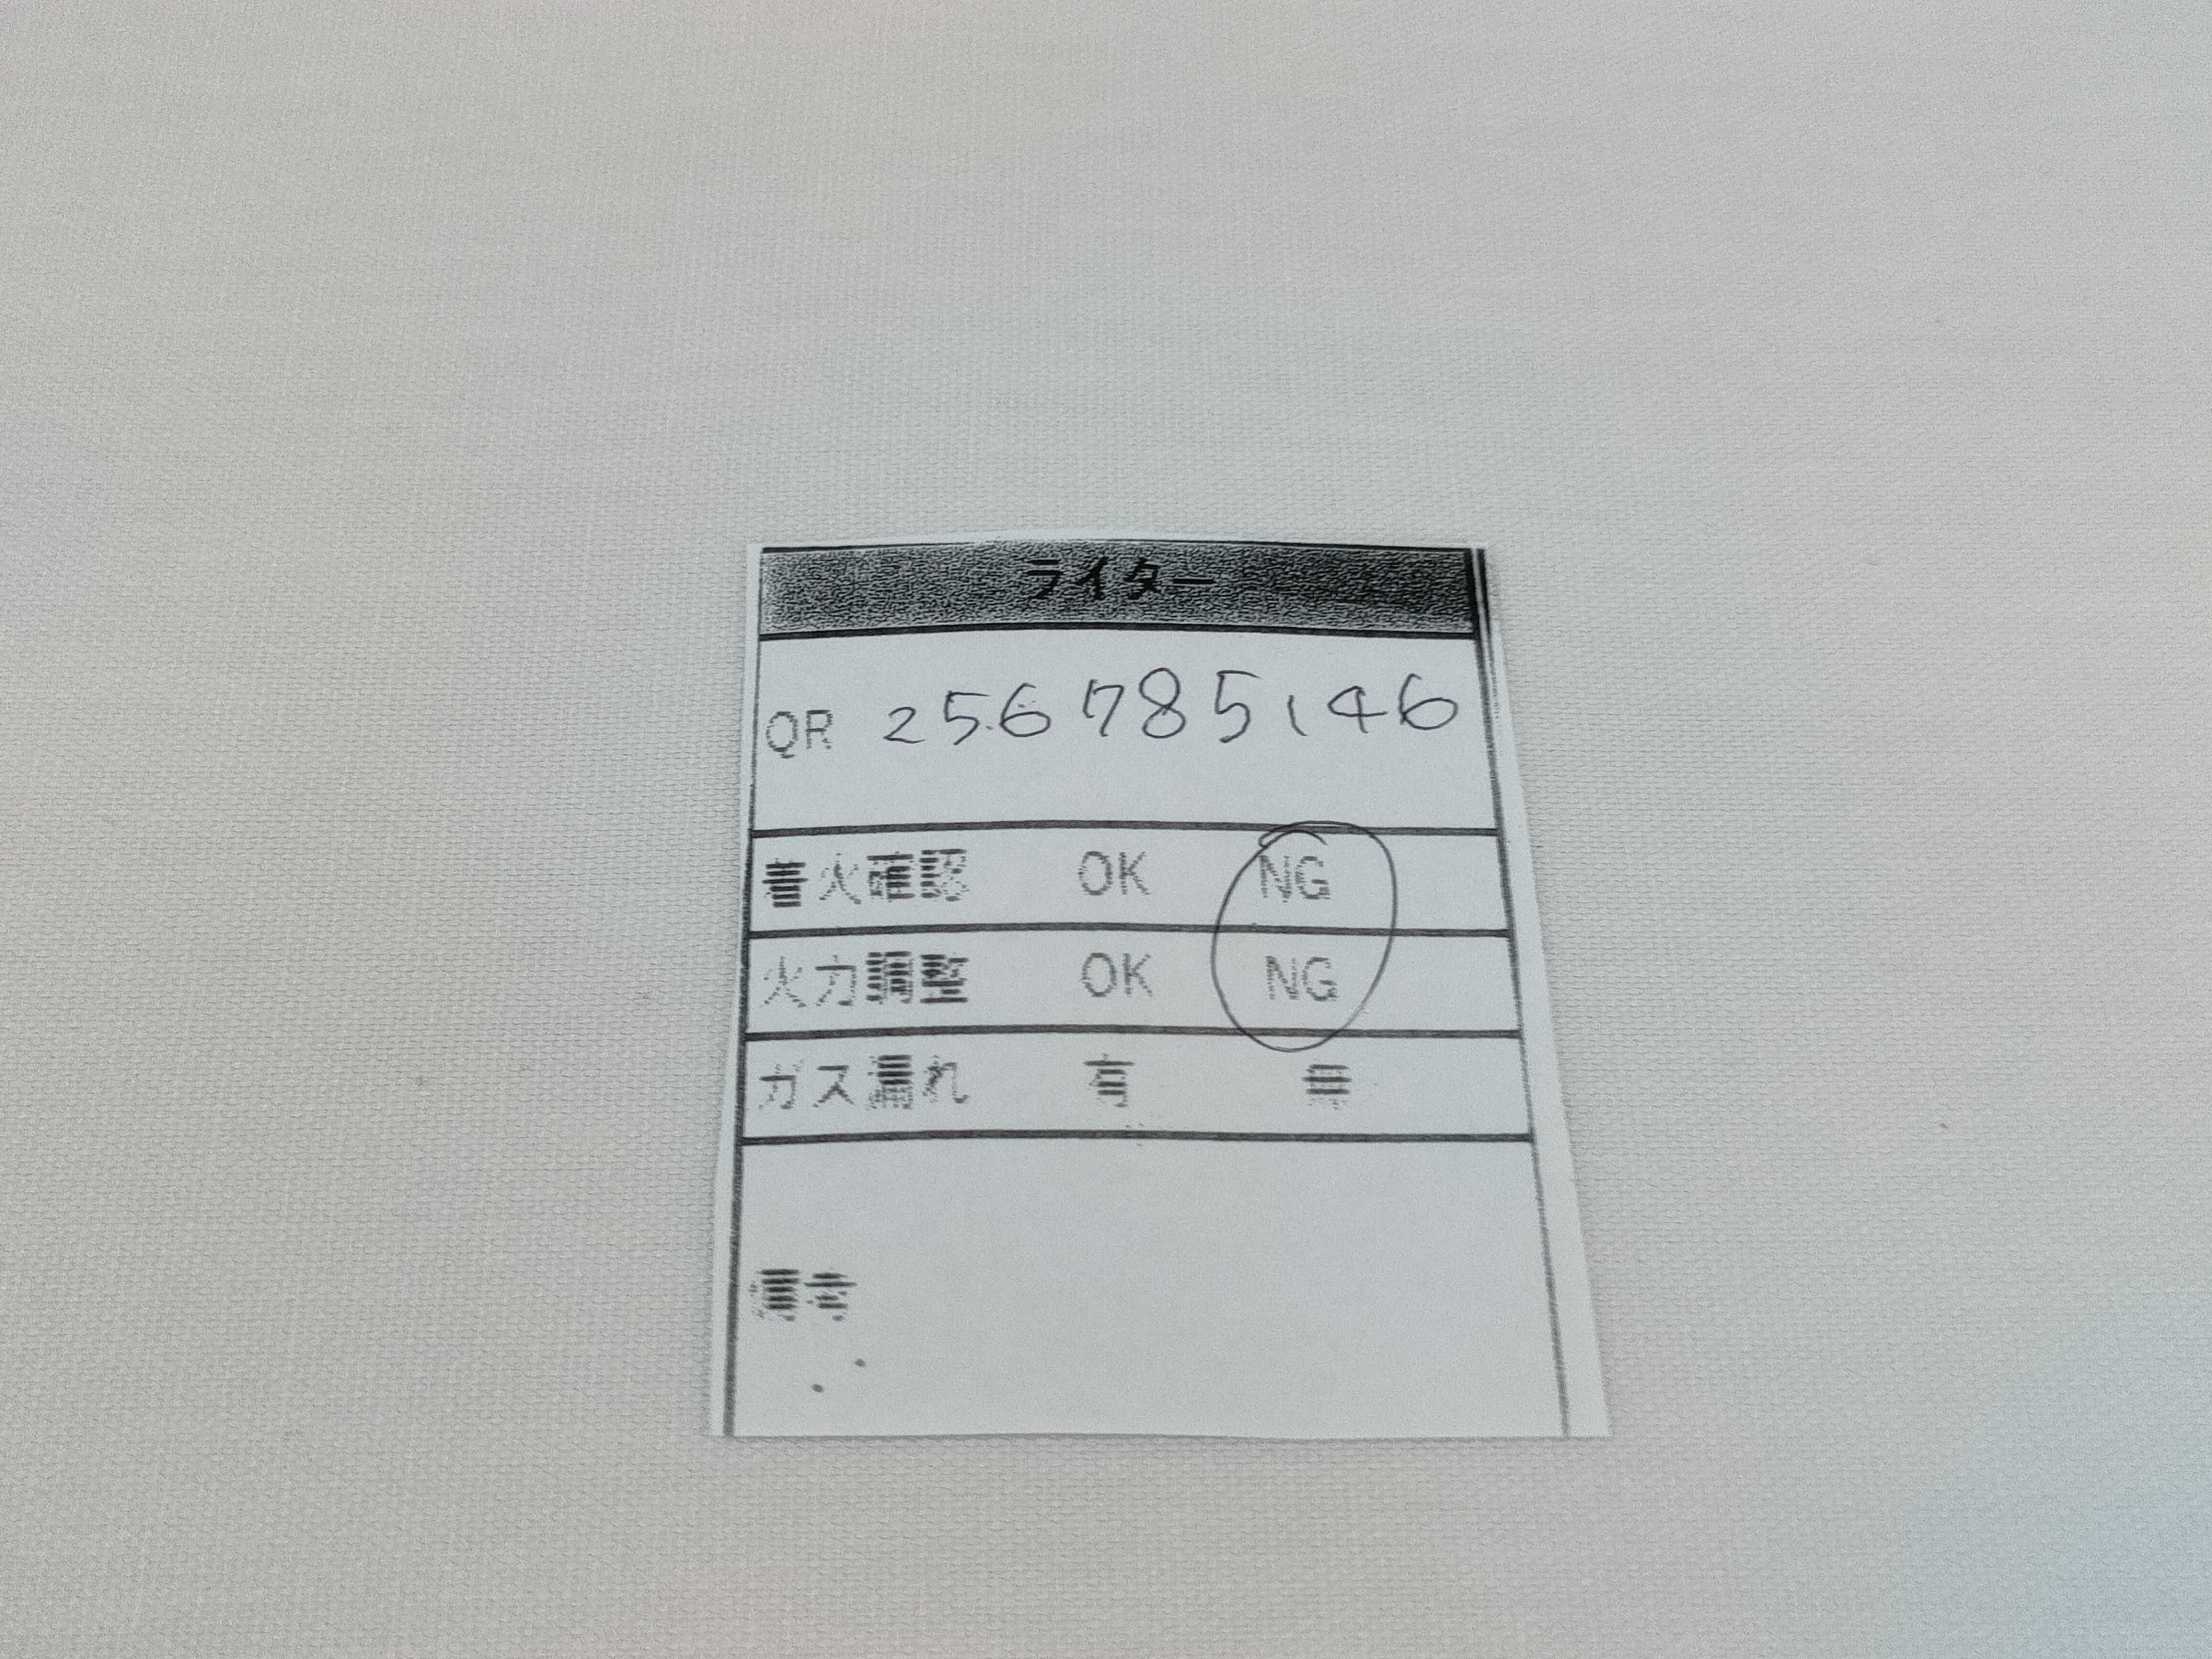 ライター
QR 256785146
着火確認 OK NG
火力調整 OK NG
ガス漏れ 有 無
備考